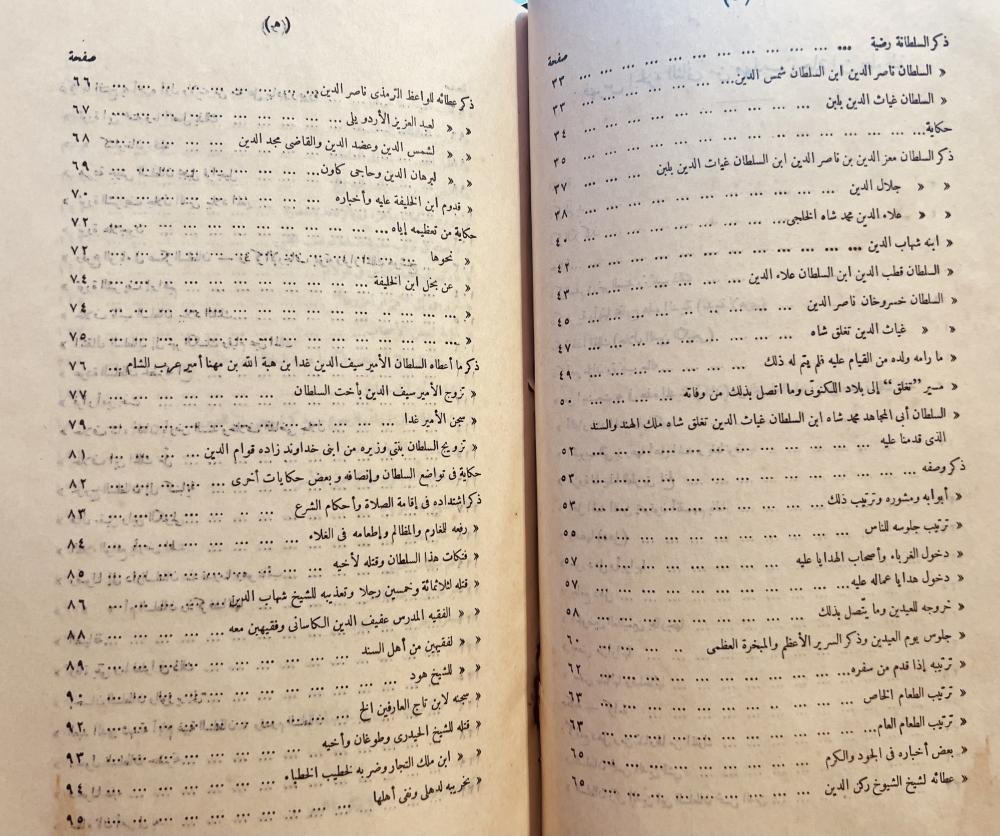 صفحة
ذكر السلطانة رضية ... ... ... ... ... ... ... ... ... ٣٣
« السلطان ناصر الدين ابن السلطان شمس الدين... ... ... ... ... ... ٣٣
« السلطان غياث الدين بلبن ... ... ... ... ... ... ... ... ٣٤
حكاية... ... ... ... ... ... ... ... ... ... ... ... ٣٥
ذكر السلطان معز الدين بن ناصر الدين ابن السلطان غياث الدين بلبن ... ... ... ٣٧
« « جلال الدين ... ... ... ... ... ... ... ... ... ٣٨
« « علاء الدين محمد شاه الخلجى... ... ... ... ... ... ... ٤٠
« ابنه شهاب الدين ... ... ... ... ... ... ... ... ... ٤٢
« السلطان قطب الدين ابن السلطان علاء الدين ... ... ... ... ... ... ٤٣
« السلطان خسروخان ناصر الدين ... ... ... ... ... ... ... ٤٥
« « غياث الدين تغلق شاه ... ... ... ... ... ... ... ٤٧
« ما رامه ولده من القيام عليه فلم يتم له ذلك ... ... ... ... ... ٤٩
« مسير ”تغلق“ إلى بلاد اللكنوتى وما اتصل بذلك من وفاته ... ... ... ... ٥٠
« السلطان أبى المجاهد محمد شاه ابن السلطان غياث الدين تغلق شاه ملك الهند والسند
الذى قدمنا عليه ... ... ... ... ... ... ... ... ... ... ٥٢
ذكر وصفه ... ... ... ... ... ... ... ... ... ... ... ٥٣
« أبوابه ومشوره وترتيب ذلك ... ... ... ... ... ... ... ... ٥٣
« ترتيب جلوسه للناس ... ... ... ... ... ... ... ... ... ٥٥
« دخول الغرباء وأصحاب الهدايا عليه ... ... ... ... ... ... ... ٥٧
« دخول هدايا عماله عليه... ... ... ... ... ... ... ... ... ٥٧
« خروجه للعيدين وما يتّصل بذلك ... ... ... ... ... ... ... ٥٨
« جلوس يوم العيدين وذكر السرير الأعظم والمبخرة العظمى ... ... ... ٦٠
« ترتيبه إذا قدم من سفره... ... ... ... ... ... ... ... ... ٦٢
« ترتيب الطعام الخاص ... ... ... ... ... ... ... ... ... ٦٣
« ترتيب الطعام العام... ... ... ... ... ... ... ... ... ... ٦٣
« بعض أخباره فى الجود والكرم ... ... ... ... ... ... ... ... ٦٥
« عطائه لشيخ الشيوخ ركن الدين ... ... ... ... ... ... ... ٦٥
(ﻫ)
صفحة
ذكر عطائه للواعظ الترمذى ناصر الدين... ... ... ... ... ... ... ٦٦
« « لعبد العزيز الأردويلى ... ... ... ... ... ... ... ... ٦٧
« « لشمس الدين وعضد الدين والقاضى مجد الدين ... ... ... ... ٦٨
« « لبرهان الدين وحاجى كاون... ... ... ... ... ... ... ٦٩
« قدوم ابن الخليفة عليه وأخباره ... ... ... ... ... ... ... ٧٠
حكاية من تعظيمه إياه ... ... ... ... ... ... ... ... ... ٧٢
« نحوها ... ... ... ... ... ... ... ... ... ... ... ٧٢
« عن بخل ابن الخليفة ... ... ... ... ... ... ... ... ... ٧٤
« ... ... ... ... ... ... ... ... ... ... ... ... ٧٤
« ... ... ... ... ... ... ... ... ... ... ... ... ٧٥
ذكر ما أعطاه السلطان الأمير سيف الدين غدا بن هبة الله بن مهنا أمير عرب الشام ... ٧٦
« تزوج الأمير سيف الدين بأخت السلطان ... ... ... ... ... ... ٧٧
« سجن الأمير غدا ... ... ... ... ... ... ... ... ... ٧٩
« تزويج السلطان بنتى وزيره من ابنى خداوند زاده قوام الدين ... ... ... ... ٨١
حكاية فى تواضع السلطان وإنصافه وبعض حكايات أخرى ... ... ... ... ٨٢
ذكر اشتداده فى إقامة الصلاة وأحكام الشرع ... ... ... ... ... ٨٣
« رفعه للمغارم والمظالم وإطعامه فى الغلاء ... ... ... ... ... ... ٨٤
« فتكات هذا السلطان وقتله لأخيه ... ... ... ... ... ... ... ٨٥
« قتله لثلاثمائة وخمسين رجلا وتعذيبه للشيخ شهاب الدين ... ... ... ٨٦
« « الفقيه المدرس عفيف الدين الكاسانى وفقيهين معه ... ... ... ٨٨
« « لفقيهين من أهل السند ... ... ... ... ... ... ... ٨٩
« « للشيخ هود ... ... ... ... ... ... ... ... ... ٩٠
« سجنه لابن تاج العارفين الخ ... ... ... ... ... ... ... ... ٩٢
« قتله للشيخ الحيدرى وطوغان وأخيه ... ... ... ... ... ... ... ٩٣
« « ابن ملك التجار وضربه لخطيب الخطباء ... ... ... ... ... ٩٤
« تخريبه لدهلى ونفى أهلها ... ... ... ... ... ... ... ... ٩٥